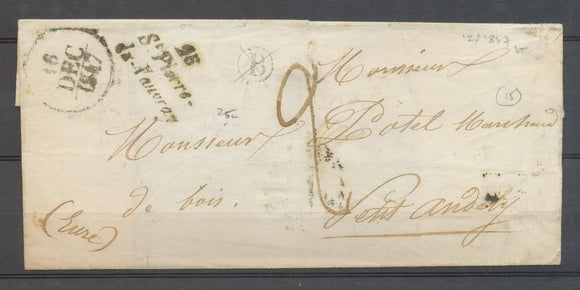 16
DEC
1847
26
St Pierre-
de-Vauvray
B
2/1847
Monsieur
15
2
Monsieur Potel Marchand
de bois.
Petit Andely
(Eure)